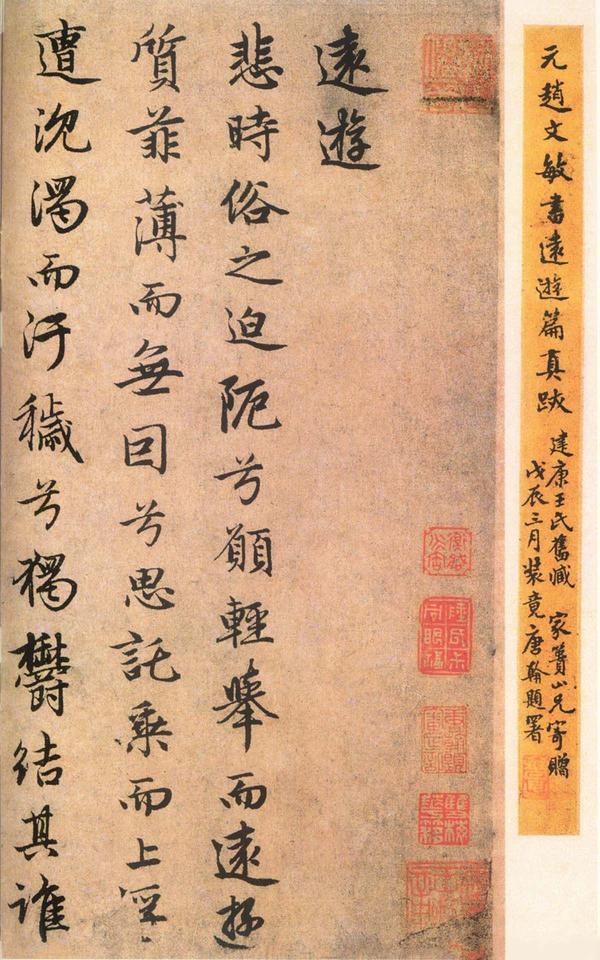 元趙文敏書遠遊篇真跡
建康王氏舊藏 家簣山兄寄贈
戊辰三月裝竟唐翰題署
遠遊
悲時俗之迫阨兮願輕舉而遠游
質菲薄而無因兮思託乘而上浮
遭沈濁而汙穢兮獨鬱結其誰